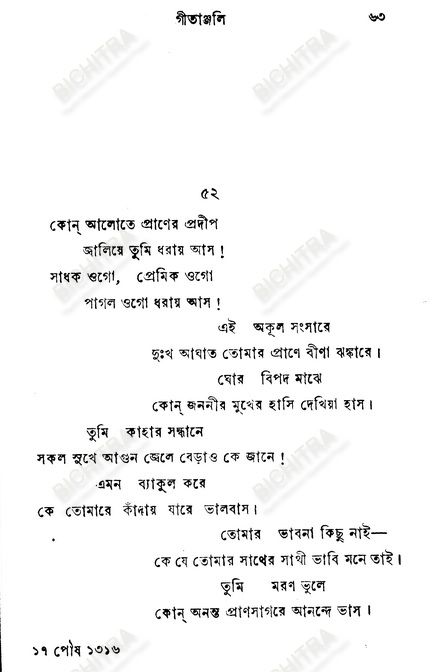 গীতাঞ্জলি ৬৩
৫২
কোন্ আলোতে প্রাণের প্রদীপ
জালিয়ে তুমি ধরায় আস !
সাধক ওগো, প্রেমিক ওগো
পাগল ওগো ধরায় আস !
এই অকূল সংসারে
দুঃখ আঘাত তোমার প্রাণে বীণা ঝঙ্কারে।
ঘোর বিপদ মাঝে
কোন্ জননীর মুখের হাসি দেখিয়া হাস।
তুমি কাহার সন্ধানে
সকল সুখে আগুন জ্বেলে বেড়াও কে জানে !
এমন ব্যাকুল করে
কে তোমারে কাঁদায় যারে ভালবাস।
তোমার ভাবনা কিছু নাই—
কে যে তোমার সাথের সাথী ভাবি মনে তাই।
তুমি মরণ ভুলে
কোন্ অনন্ত প্রাণসাগরে আনন্দে ভাস।
১৭ পৌষ ১৩১৬
BICHITRA
BICHITRA
BICHITRA
BICHITRA
BICHITRA
BICHITRA
BICHITRA
BICHITRA